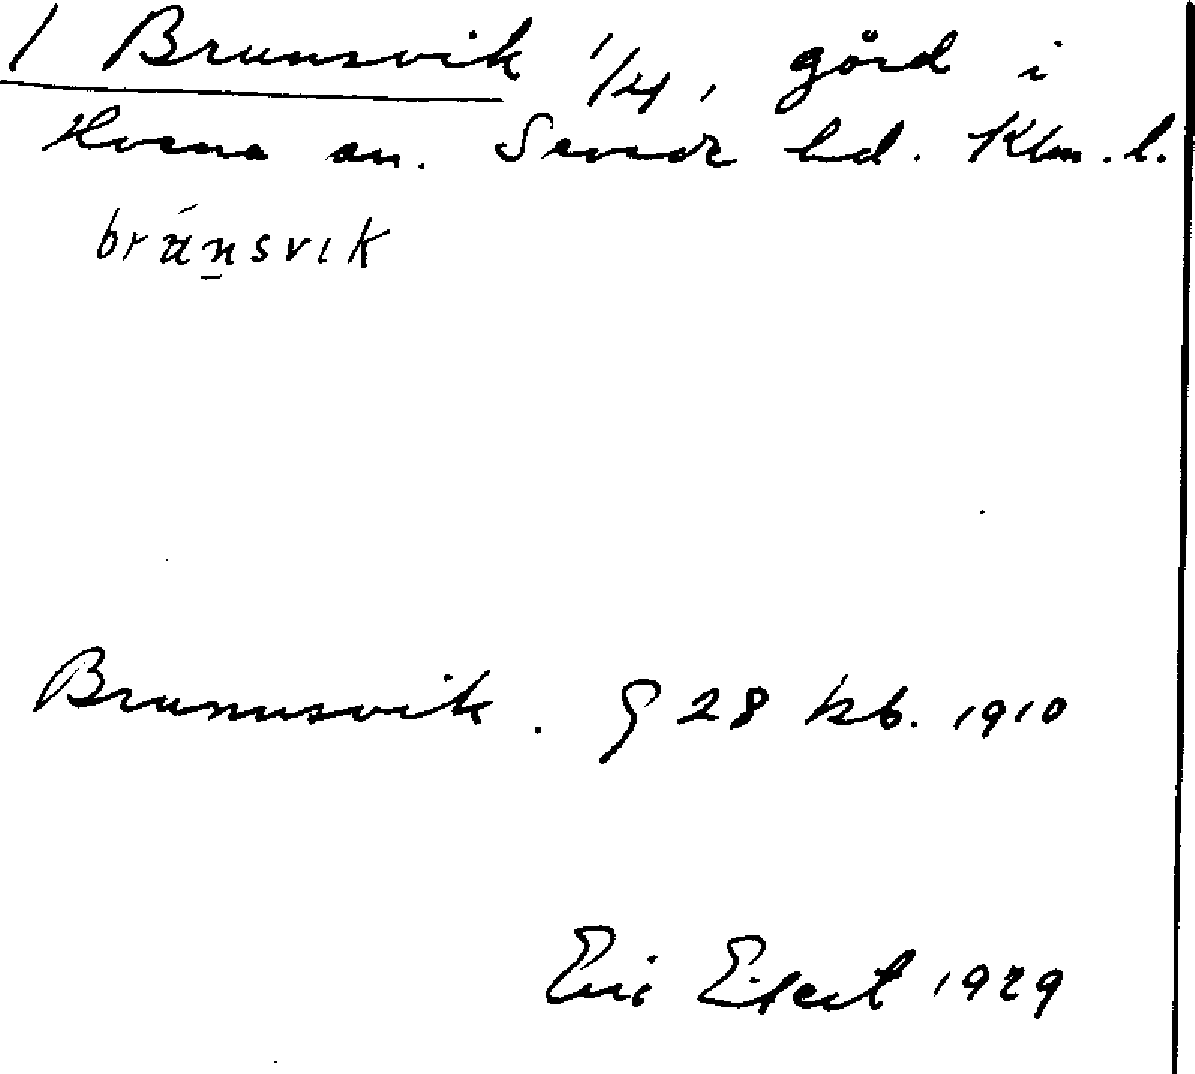 1 Brunsvik 1/4, gård i
Hvena sn. Sevede hd. Klm. l.
brúnsvik
Brunnsvik. § 28 kb. 1910
Eric 1929